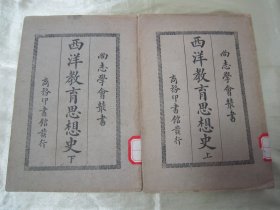 尚志學會叢書
西洋教育思想史 下
商務印書館發行
尚志學會叢書
西洋教育思想史 上
商務印書館發行